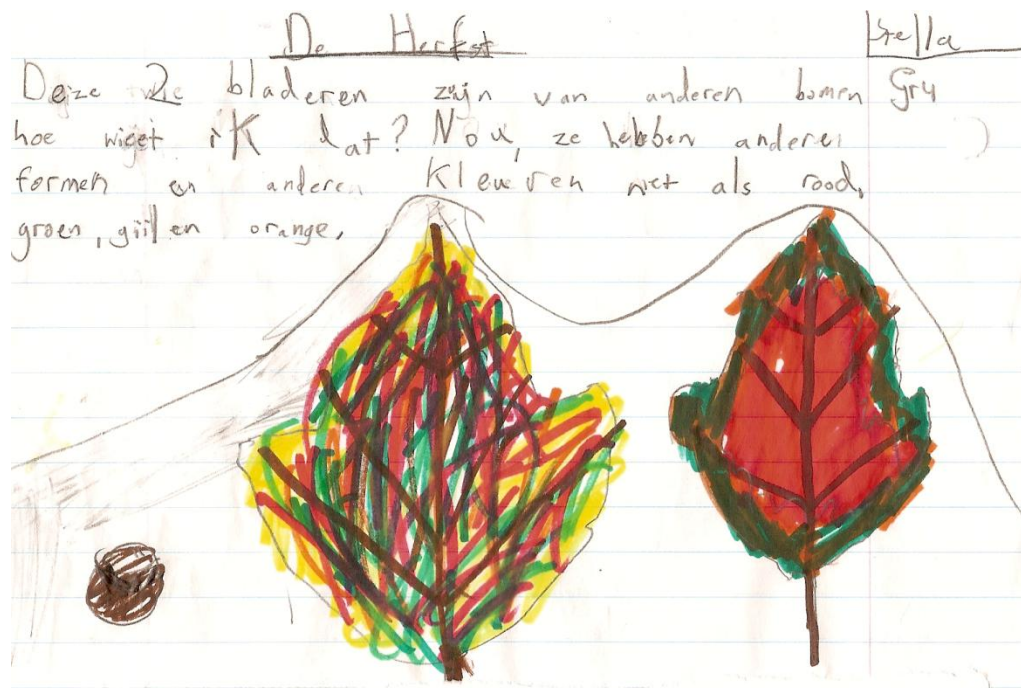 De Herfst
Stella
Deze 2 bladeren zijn van anderen bomen Gr4
hoe wiget ik dat? Nou, ze hebben anderen
formen en anderen kleuren net als rood,
groen, giil en orange,